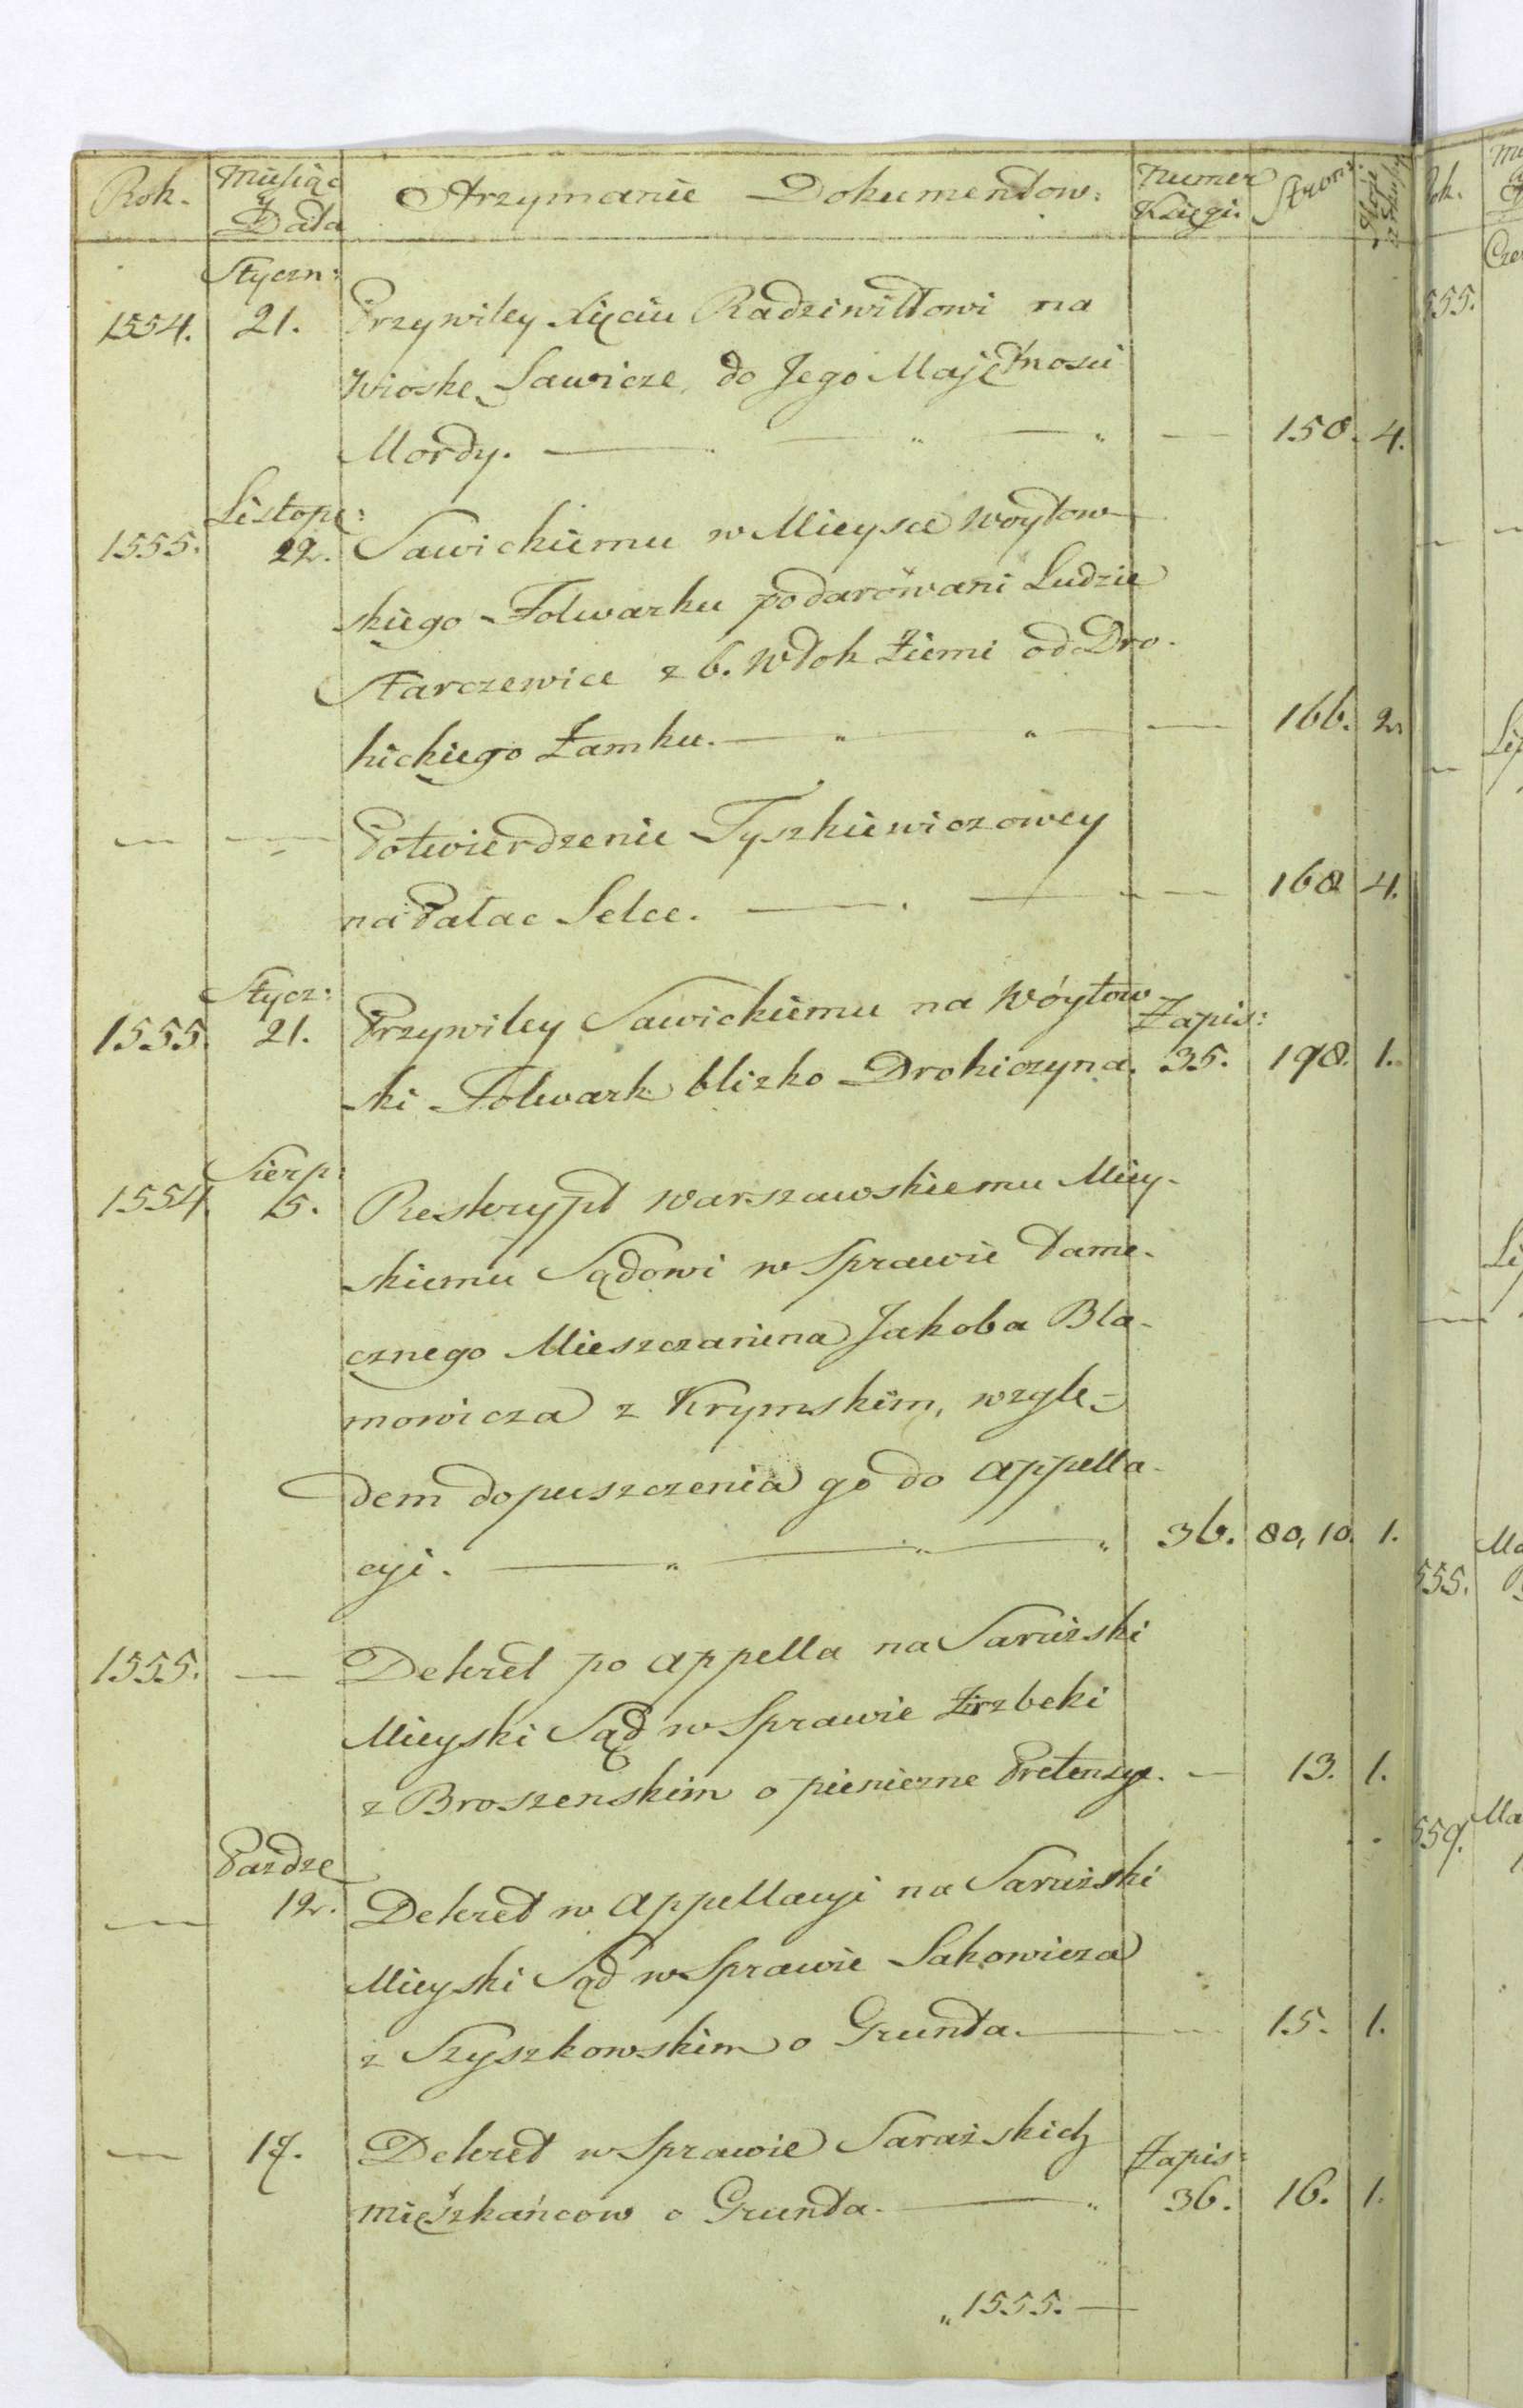 Rok. Miesiąc y Data Otrzymanie Dokumentow: Numer Księgi. Stron:
Styczn:
1554. 21. Przywiley Xięciu Radziwiłłowi na
Wioskę Sawicze, do Jego Majętnosci
Mordy. — " — " — 150. 4.
Listopa:
1555. 22. Sawickiemu w Mieysce Woytow-
skiego Folwarku podarowani Ludzie
Starczewice z 6. Włok Ziemi od Dro-
hickiego Zamku. — " — " — 166. 2.
— — Potwierdzenie Tyszkiewiczowey
na Pałac Selce. — . — — 168 4.
Stycz:
1555. 21. Przywiley Sawickiemu na Wóytow-
ski Folwark blizko Drohiczyna. Zapis: 35. 198. 1.
Sierp:
1554. 15. Reskrypt Warszawskiemu Miey-
skiemu Sądowi w Sprawie tame-
cznego Mieszczanina Jakoba Bla-
mowicza z Krymskim, wzglę-
dem dopuszczenia go do appella-
cyi. — " — " — " 36. 80, 10. 1.
1555. — Dekret po appella na Saraźski
Mieyski Sąd w Sprawie Zirzbeki
z Broszenskim o pienięzne Pretensye. — 13. 1.
Pazdze
— 12. Dekret w appellacyi na Saraźski
Mieyski Sąd w Sprawie Sakowicza
z Szyszkowskim o Grunta. — — 15. 1.
— 17. Dekret w Sprawie Saraźskich
mieszkańcow o Grunta. — " Zapis: 36. 16. 1.
„1555. —